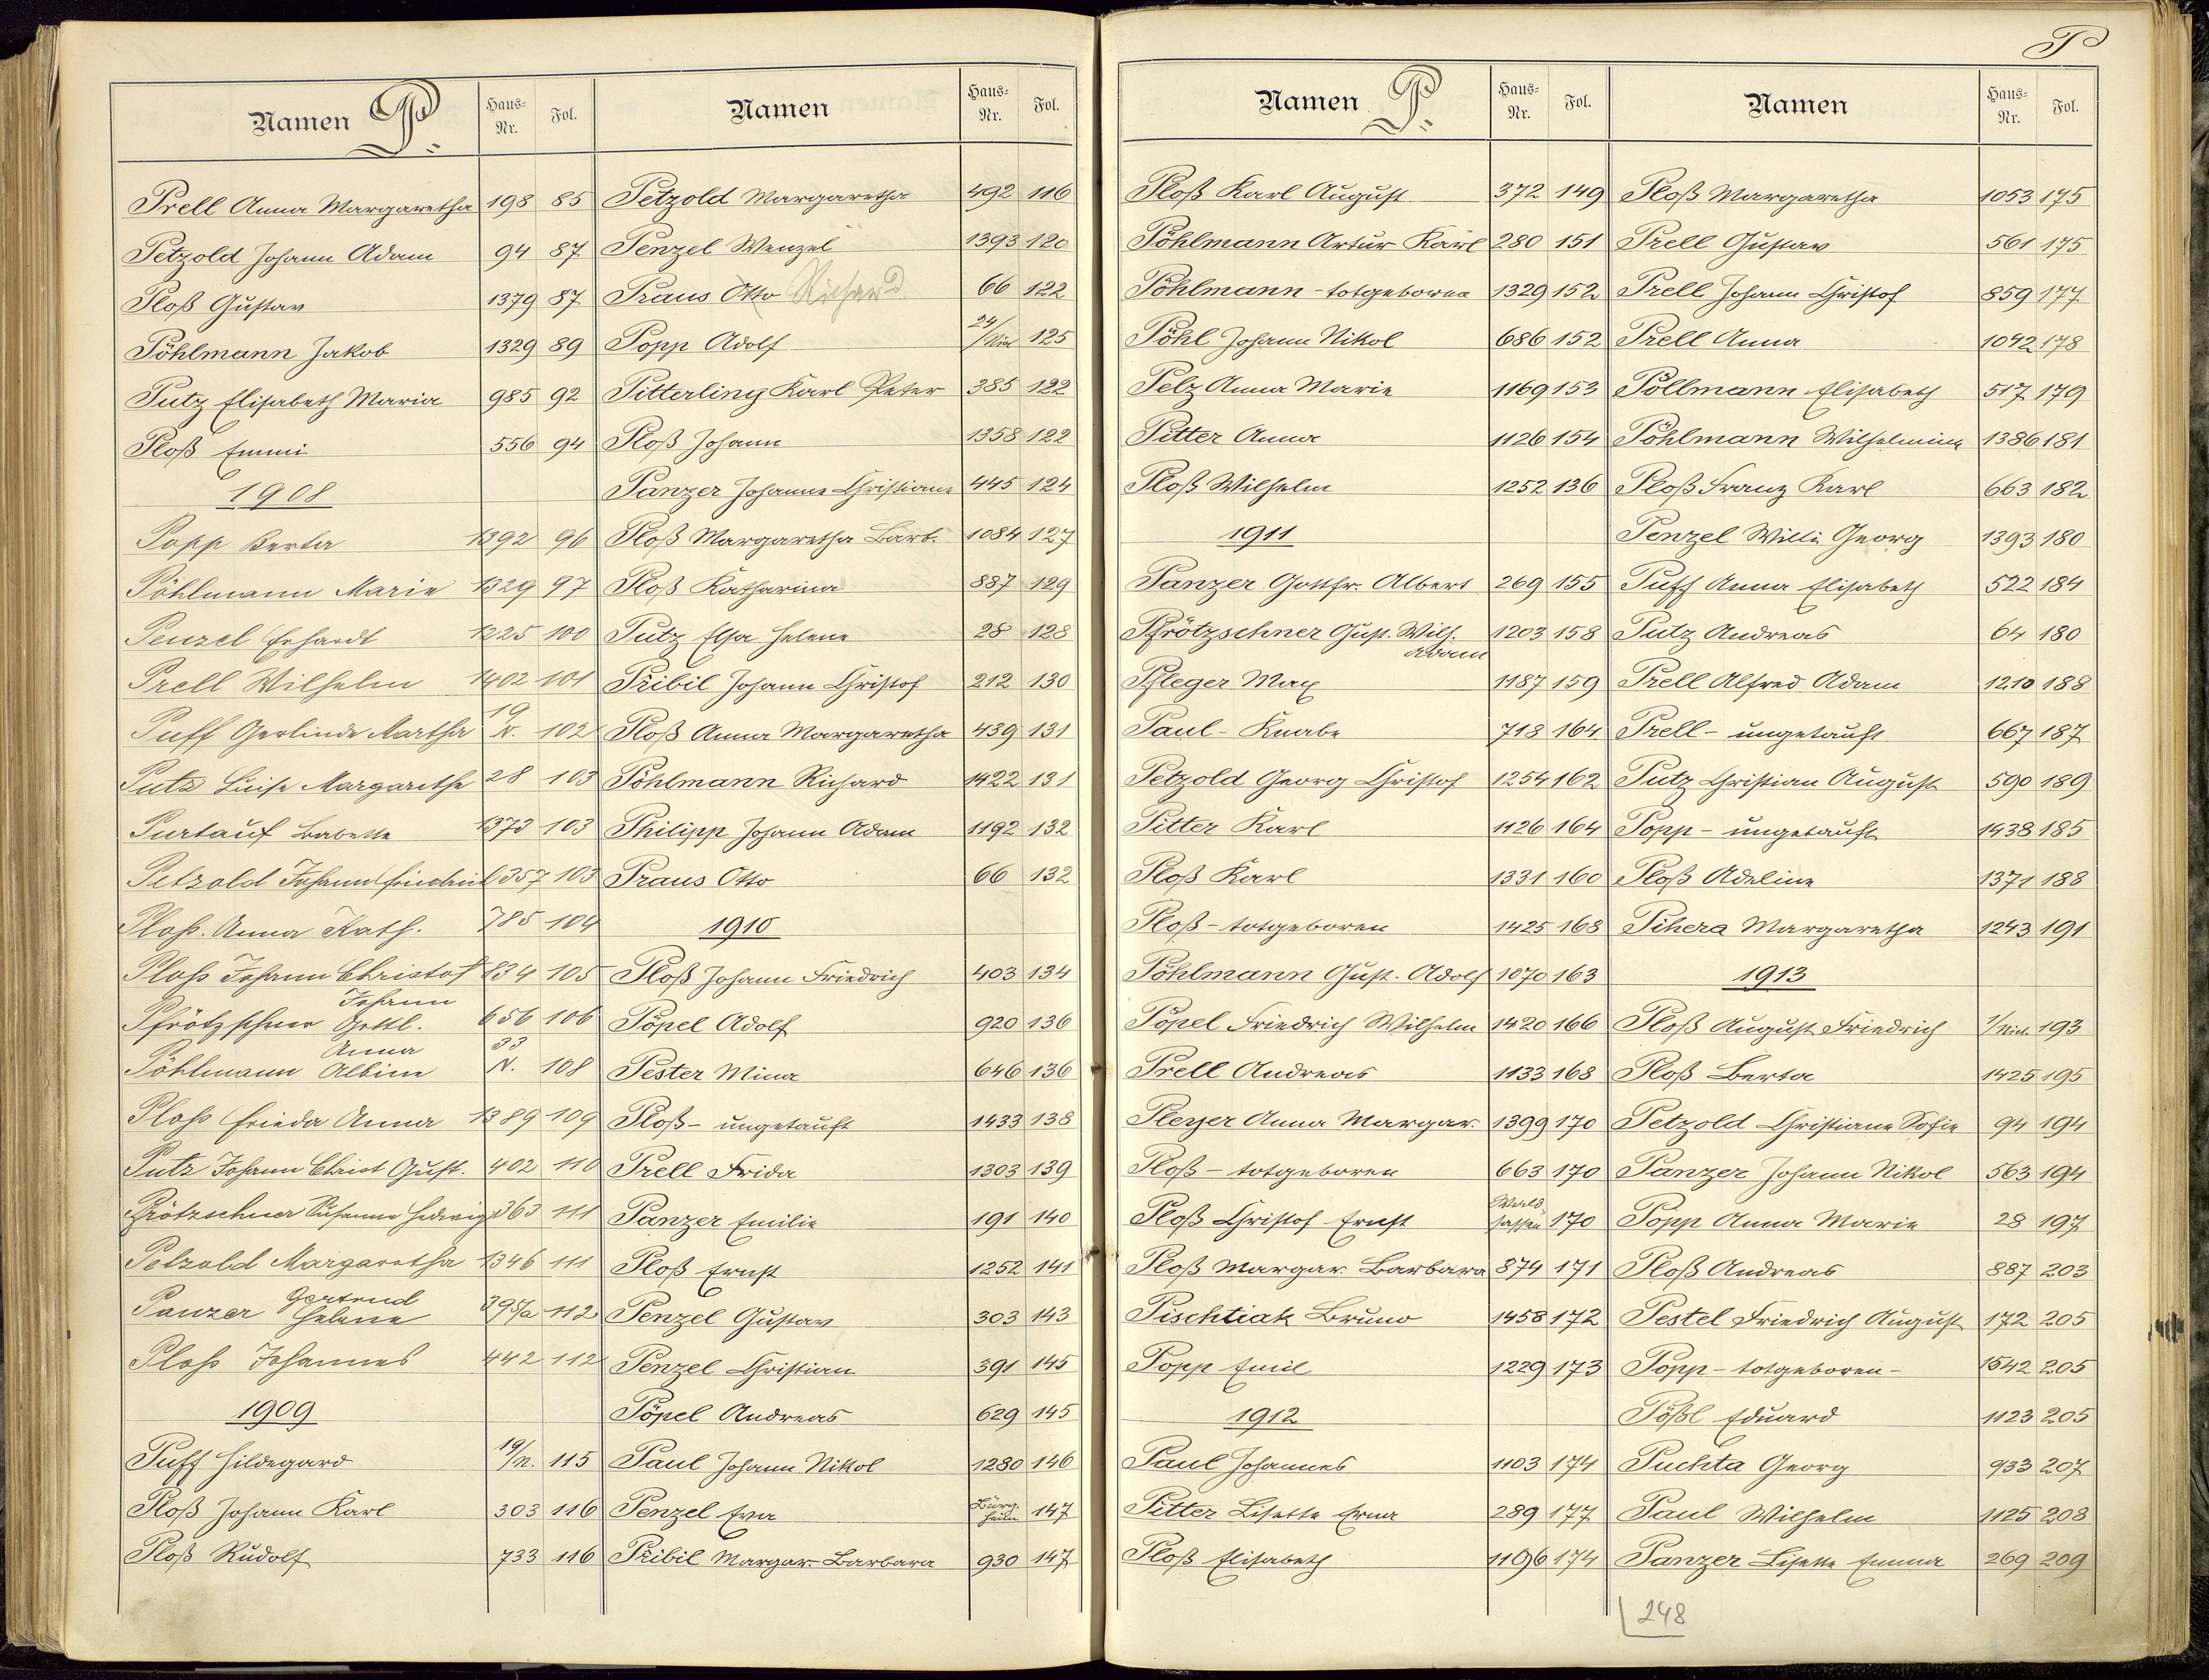 P
Namen P. Haus-Nr. Fol.
Prell Anna Margaretha 198 85
Petzold Johann Adam 94 87
Ploß Gustav 1379 87
Pöhlmann Jakob 1329 89
Putz Elisabeth Maria 985 92
Ploß Emmi 556 94
1908
Popp Berta 1392 96
Pöhlmann Marie 1329 97
Penzel Erhardt 1225 100
Prell Wilhelm 1402 101
Puff Gerlinde Martha 19 N. 102
Putz Luise Margarethe 28 103
Purtauf Babette 1373 103
Petzold Johann Friedrich 357 103
Ploß. Anna Kath. 785 104
Ploß Johann Christof 834 105
Pfrötzschner Johann Gottl. 656 106
Pöhlmann Anna Albine 33 N. 108
Ploß Frieda Anna 1389 109
Putz Johann Christ Gust. 402 110
Pfrötzschner Susanna Hedwig 363 111
Petzold Margaretha 1346 111
Panzer Gertrud Helene 395/a 112
Ploß Johannes 442 112
1909
Puff Hildegard 19/N. 115
Ploß Johann Karl 303 116
Ploß Rudolf 733 116
Namen Haus-Nr. Fol.
Petzold Margaretha 492 116
Penzel Wenzel 1393 120
Praus Otto Richard 66 122
Popp Adolf 24/ 125
Pitterling Karl Peter 385 122
Ploß Johann 1358 122
Panzer Johanna Christiane 445 124
Ploß Margaretha Barb. 1084 127
Ploß Katharina 887 129
Putz Elsa Helene 28 128
Pribil Johann Christof 212 130
Ploß Anna Margaretha 439 131
Pöhlmann Richard 1422 131
Philipp Johann Adam 1192 132
Praus Otto 66 132
1910
Ploß Johann Friedrich 403 134
Pöpel Adolf 920 136
Pester Mina 646 136
Ploß - ungetauft 1433 138
Prell Frida 1303 139
Panzer Emilie 191 140
Ploß Ernst 1252 141
Penzel Gustav 303 143
Penzel Christian 391 145
Pöpel Andreas 629 145
Paul Johann Nikol 1280 146
Penzel Eva 147
Pribil Margar. Barbara 930 147
Namen P. Haus-Nr. Fol.
Ploß Karl August 372 149
Pöhlmann Artur Karl 280 151
Pöhlmann - totgeboren 1329 152
Pöhl Johann Nikol 686 152
Pelz Anna Marie 1169 153
Pitter Anna 1126 154
Ploß Wilhelm 1252 136
1911
Panzer Gottfr. Albert 269 155
Pfrötzschner Gust. Wilh. Adam 1203 158
Pfleger Max 1187 159
Paul - Knabe 718 164
Petzold Georg Christof 1254 162
Pitter Karl 1126 164
Ploß Karl 1331 160
Ploß - totgeboren 1425 168
Pöhlmann Gust. Adolf 1070 163
Pöpel Friedrich Wilhelm 1420 166
Prell Andreas 1133 168
Pleyer Anna Margar. 1399 170
Ploß - totgeboren 663 170
Ploß Christof Ernst Waldsassen 170
Ploß Margar. Barbara 874 171
Pischtiak Bruno 1458 172
Popp Emil 1229 173
1912
Paul Johannes 1103 174
Pitter Lisette Erna 289 177
Ploß Elisabeth 1196 174
Namen Haus-Nr. Fol.
Ploß Margaretha 1053 175
Prell Gustav 561 175
Prell Johann Christof 859 177
Prell Anna 1042 178
Pöllmann Elisabeth 517 179
Pöhlmann Wilhelmine 1386 181
Ploß Franz Karl 663 182
Penzel Willi Georg 1393 180
Puff Anna Elisabeth 522 184
Putz Andreas 64 180
Prell Alfred Adam 1210 188
Prell - ungetauft 667 187
Putz Christian August 590 189
Popp - ungetauft 1438 185
Ploß Adeline 1371 188
Pihera Margaretha 1243 191
1913
Ploß August Friedrich 193
Ploß Berta 1425 195
Petzold Christiane Sofie 94 194
Panzer Johann Nikol 563 194
Popp Anna Marie 28 197
Ploß Andreas 887 203
Pestel Friedrich August 172 205
Popp - totgeboren - 1542 205
Pößl Eduard 1123 205
Puchta Georg 933 207
Paul Wilhelm 1125 208
Panzer Lisette Emma 269 209
248